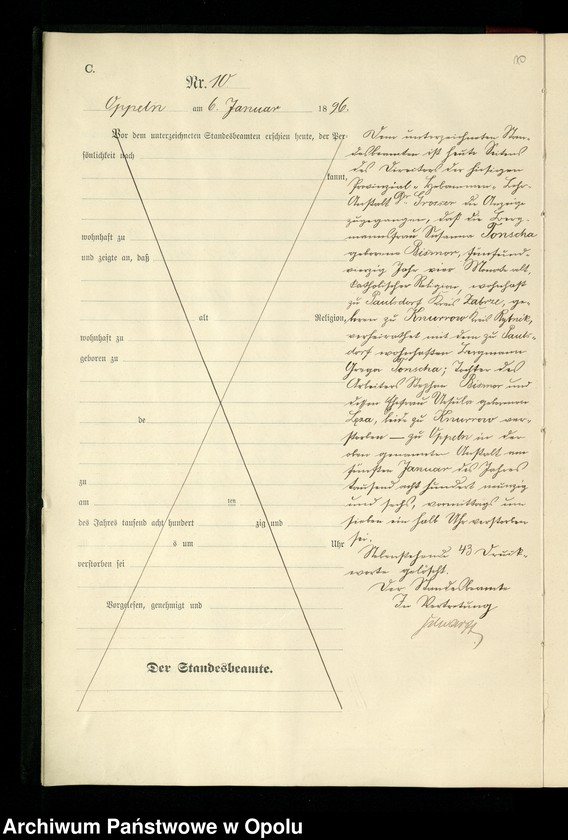 C.
10
Nr. 10.
Oppeln am 6. Januar 1896.
Vor dem unterzeichneten Standesbeamten erschien heute, der Per-
sönlichkeit nach
kannt,
wohnhaft zu
und zeigte an, daß
alt Religion,
wohnhaft zu
geboren zu
de
zu
am ten
des Jahres tausend acht hundert zig und
s um Uhr
verstorben sei
Vorgelesen, genehmigt und
Der Standesbeamte.
Dem unterzeichneten Stan-
desbeamten ist heute Seitens
des Directors der hiesigen
Provinzial-Hebammen-Lehr-
Anstalt Dr. die Anzeige
zugegangen, daß die Berg-
mannsfrau Johanna Tonscha
geborene Bismor, fünfund-
vierzig Jahr vier Monate alt,
katholischer Religion, wohnhaft
zu Paulsdorf Kreis Zabrze, ge-
boren zu Knurrow Kreis Rybnik,
verheirathet mit dem zu Pauls-
dorf wohnhaften Bergmann
Gregor Tonscha; Tochter des
Arbeiters Stephan Bismor und
dessen Ehefrau Ursula geborene
beide zu Knurrow ver-
storben — zu Oppeln in der
oben genannte Anstalt am
fünften Januar des Jahres
tausend acht hundert neunzig
und sechs, vormittags um
sieben ein halb Uhr verstorben
sei.
Nebenstehende 43 Druck-
worte gelöscht.
Der Standesbeamte
In Vertretung
Archiwum Państwowe w Opolu